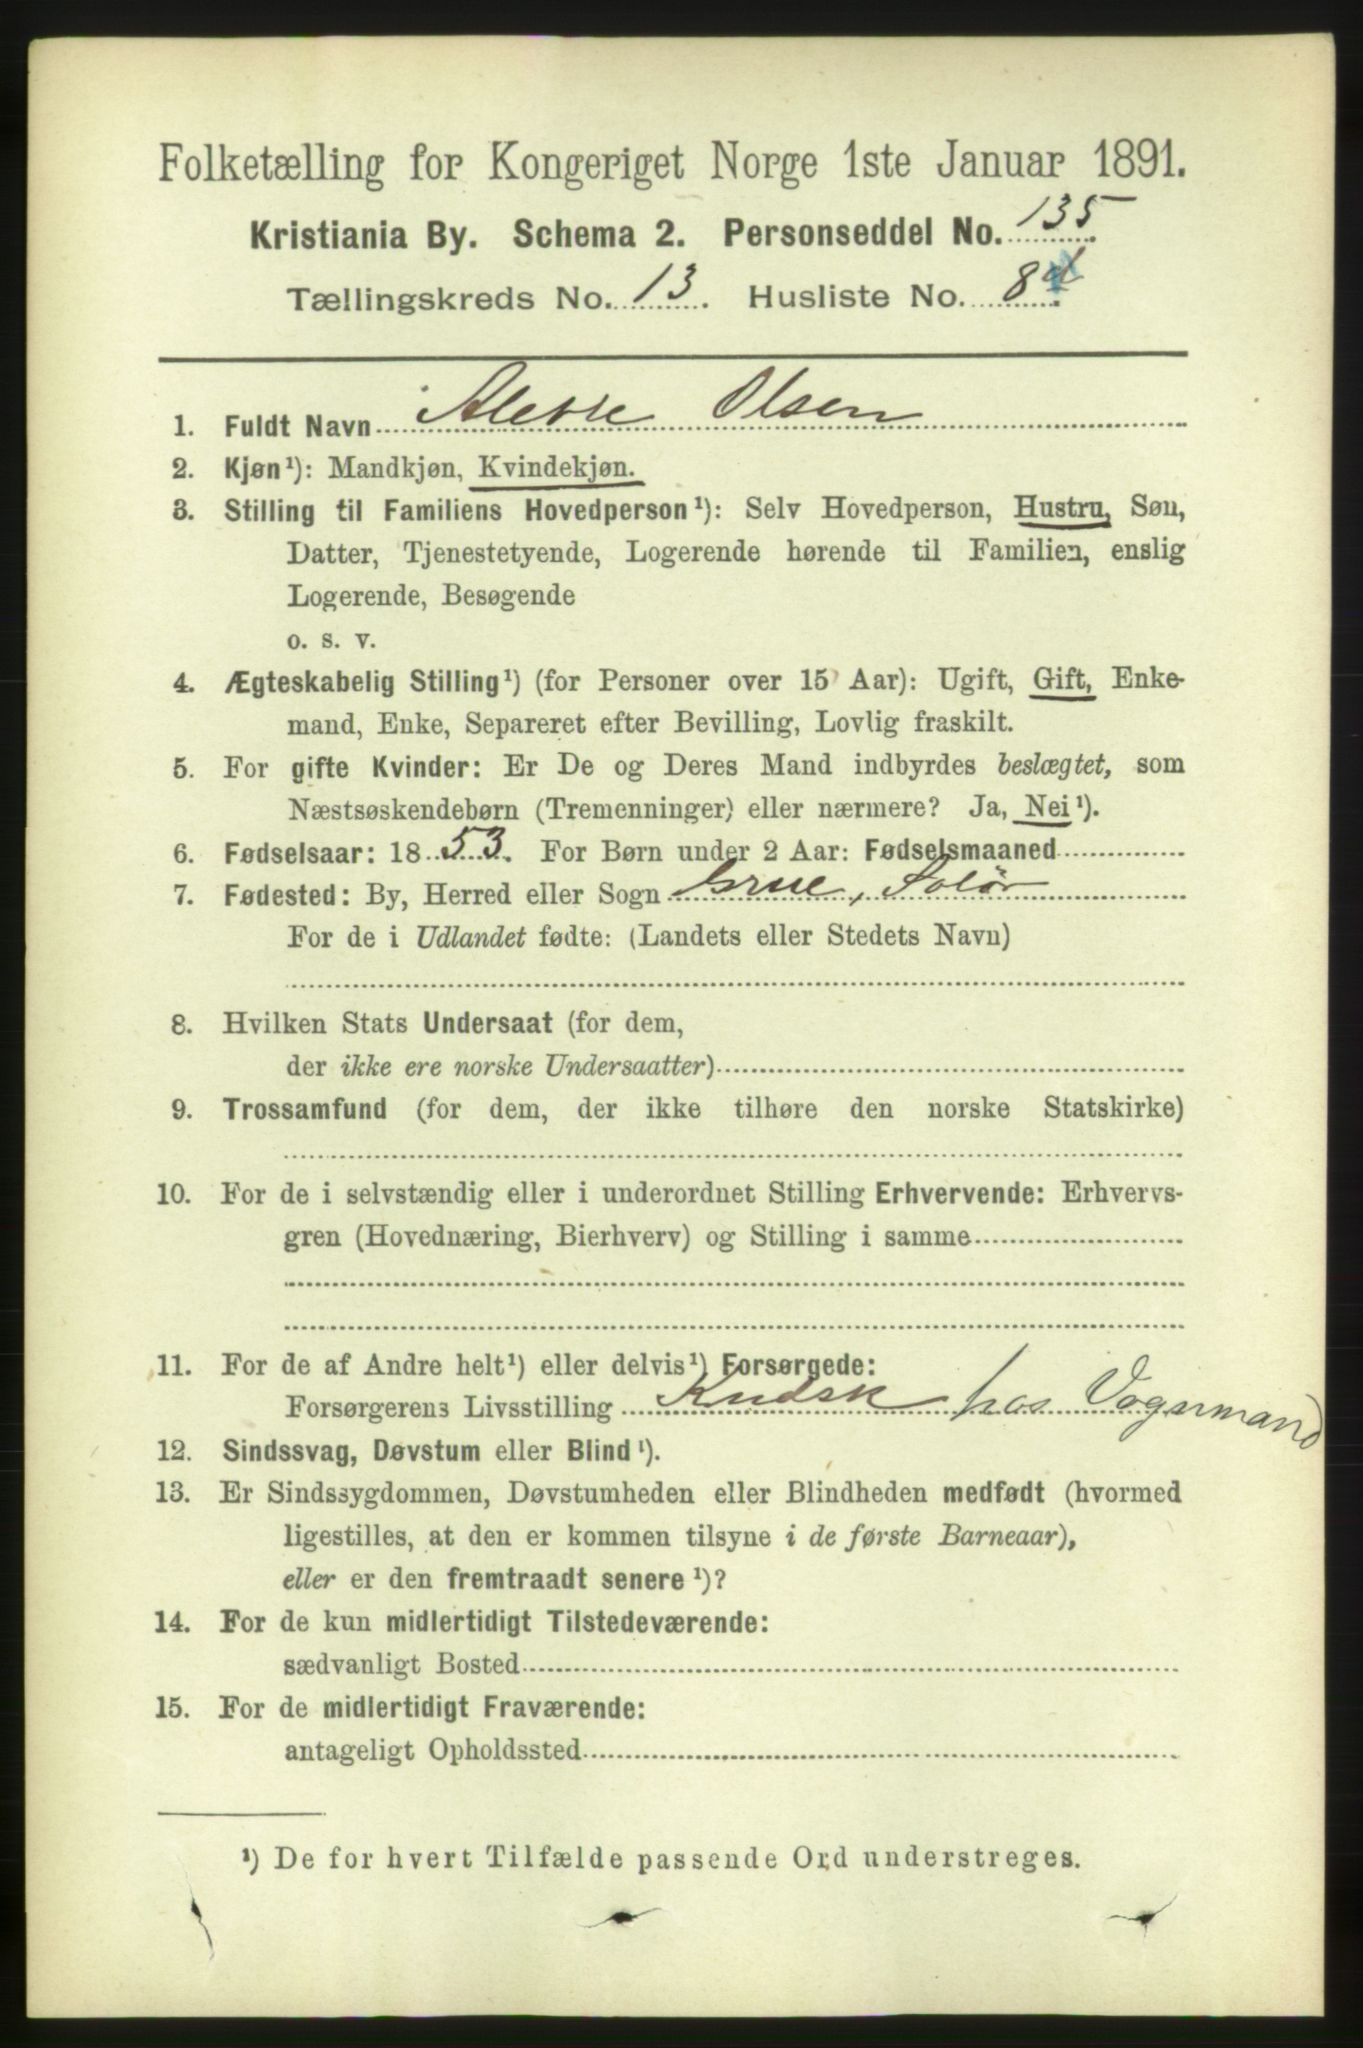 Folketælling for Kongeriget Norge 1ste Januar 1891.
Kristiania By. Schema 2. Personseddel No. 135
Tællingskreds No. 13. Husliste No. 8d
1. Fuldt Navn Olsen
2. Kjøn¹): Mandkjøn, Kvindekjøn.
3. Stilling til Familiens Hovedperson¹): Selv Hovedperson, Hustru, Søn,
Datter, Tjenestetyende, Logerende hørende til Familien, enslig
Logerende, Besøgende
o. s. v.
4. Ægteskabelig Stilling¹) (for Personer over 15 Aar): Ugift, Gift, Enke-
mand, Enke, Separeret efter Bevilling, Lovlig fraskilt.
5. For gifte Kvinder: Er De og Deres Mand indbyrdes beslægtet, som
Næstsøskendebørn (Tremenninger) eller nærmere? Ja, Nei¹).
6. Fødselsaar: 1853. For Børn under 2 Aar: Fødselsmaaned
7. Fødested: By, Herred eller Sogn Grue, Solør
For de i Udlandet fødte: (Landets eller Stedets Navn)
8. Hvilken Stats Undersaat (for dem,
der ikke ere norske Undersaatter)
9. Trossamfund (for dem, der ikke tilhøre den norske Statskirke)
10. For de i selvstændig eller i underordnet Stilling Erhvervende: Erhvervs-
gren (Hovednæring, Bierhverv) og Stilling i samme
11. For de af Andre helt¹) eller delvis¹) Forsørgede:
Forsørgerens Livsstilling Kudsk hos Vognmand
12. Sindssvag, Døvstum eller Blind¹).
13. Er Sindssygdommen, Døvstumheden eller Blindheden medfødt (hvormed
ligestilles, at den er kommen tilsyne i de første Barneaar),
eller er den fremtraadt senere¹)?
14. For de kun midlertidigt Tilstedeværende:
sædvanligt Bosted
15. For de midlertidigt Fraværende:
antageligt Opholdssted
¹) De for hvert Tilfælde passende Ord understreges.